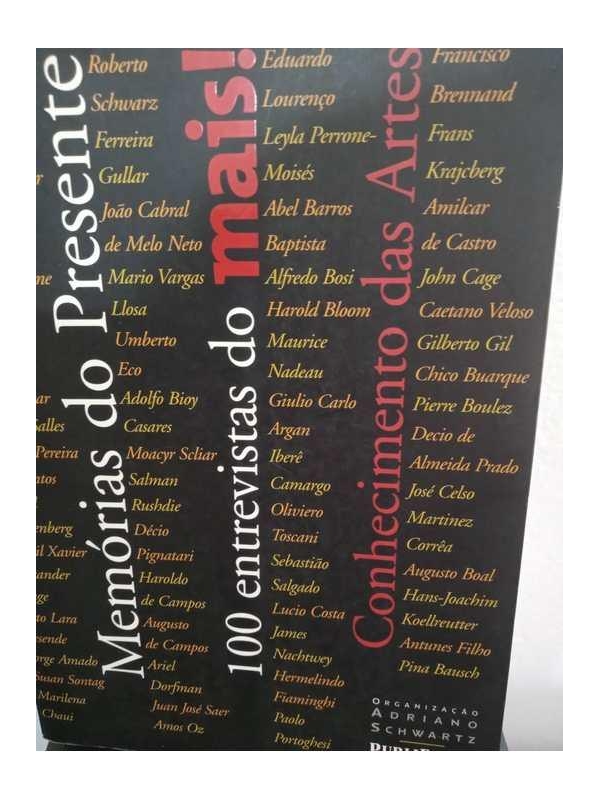 Memórias do Presente
100 entrevistas do mais!
Conhecimento das Artes
Salles
Pereira
Xavier
Lara
Jorge Amado
Susan Sontag
Marilena
Chaui
Roberto
Schwarz
Ferreira
Gullar
João Cabral
de Melo Neto
Mario Vargas
Llosa
Umberto
Eco
Adolfo Bioy
Casares
Moacyr Scliar
Salman
Rushdie
Décio
Pignatari
Haroldo
de Campos
Augusto
de Campos
Ariel
Dorfman
Juan José Saer
Amos Oz
Eduardo
Lourenço
Leyla Perrone-
Moisés
Abel Barros
Baptista
Alfredo Bosi
Harold Bloom
Maurice
Nadeau
Giulio Carlo
Argan
Iberê
Camargo
Oliviero
Toscani
Sebastião
Salgado
Lucio Costa
James
Nachtwey
Hermelindo
Fiaminghi
Paolo
Portoghesi
Francisco
Brennand
Frans
Krajcberg
Amilcar
de Castro
John Cage
Caetano Veloso
Gilberto Gil
Chico Buarque
Pierre Boulez
Decio de
Almeida Prado
José Celso
Martinez
Corrêa
Augusto Boal
Hans-Joachim
Koellreutter
Antunes Filho
Pina Bausch
ORGANIZAÇÃO
ADRIANO
SCHWARTZ